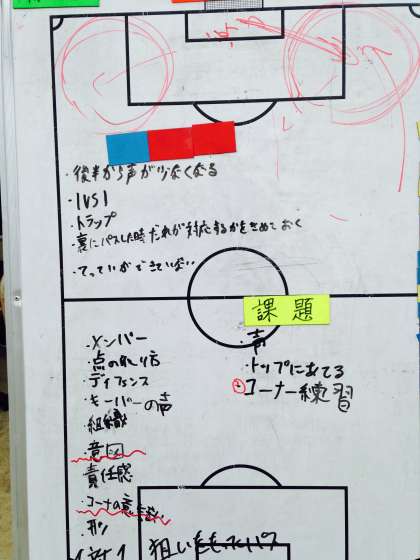 ・後半から声が少なくなる
・1VS1
・トラップ
・裏にパスした時だれが対応するかをきめておく
・てっていができていない
課題
・声
・トップにあてる
コーナー練習
・メンバー
・点の取り方
・ディフェンス
・キーパーの声
・組織
・意図
責任感
・コーナの意識
狙いをもったパス